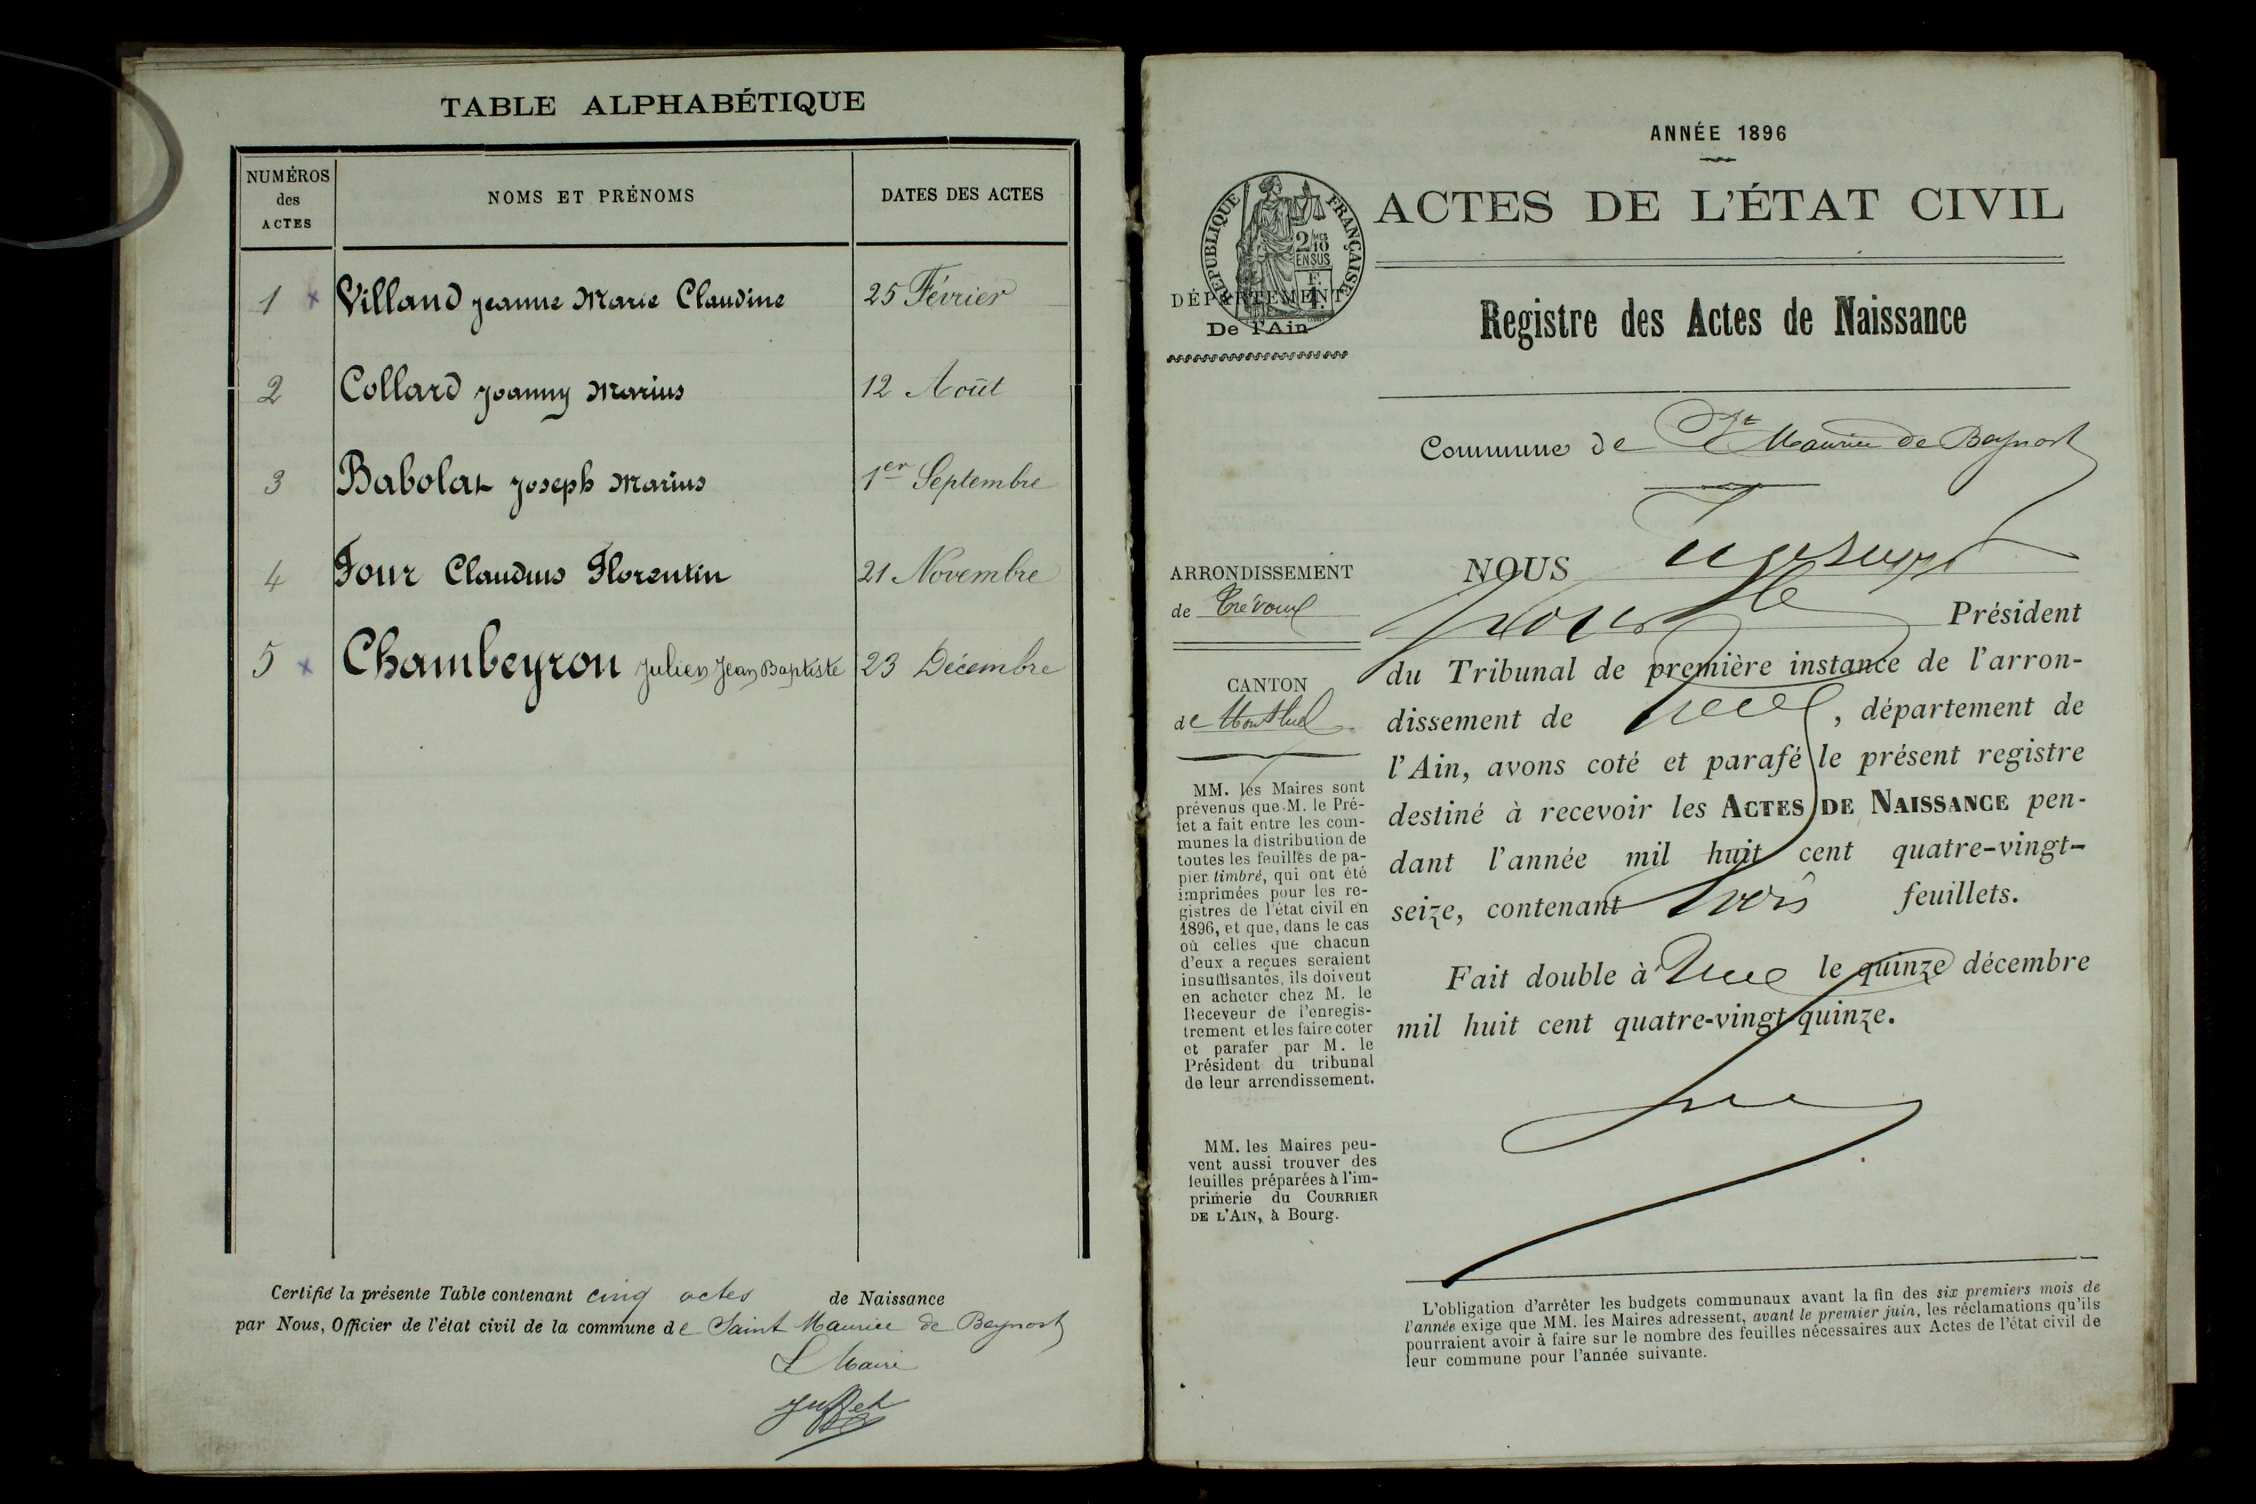 TABLE ALPHABÉTIQUE
NUMÉROS
des
ACTES
NOMS ET PRÉNOMS
DATES DES ACTES
1 x Villand Jeanne Marie Claudine 25 Février
2 Collard Joanny Marius 12 Août
3 Babolat Joseph Marius 1er Septembre
4 Four Claudius Florentin 21 Novembre
5 x Chambeyron Julien Jean Baptiste 23 Décembre
Certifié la présente Table contenant cinq actes de Naissance
par Nous, Officier de l'état civil de la commune de Saint Maurice de Beynost
Le Maire
ANNÉE 1896
ACTES DE L'ÉTAT CIVIL
RÉPUBLIQUE FRANÇAISE
2/10
EN SUS
DÉPARTEMENT
De l'Ain
Registre des Actes de Naissance
Commune de St Maurice de Beynost
ARRONDISSEMENT
de Trévoux
CANTON
de Montluel
MM. les Maires sont
prévenus que M. le Pré-
fet a fait entre les com-
munes la distribution de
toutes les feuilles de pa-
pier timbré, qui ont été
imprimées pour les re-
gistres de l'état civil en
1896, et que, dans le cas
où celles que chacun
d'eux a reçues seraient
insuffisantes, ils doivent
en acheter chez M. le
Receveur de l'enregis-
trement et les faire coter
et parafer par M. le
Président du tribunal
de leur arrondissement.
MM. les Maires peu-
vent aussi trouver des
feuilles préparées à l'im-
primerie du COURRIER
DE L'AIN, à Bourg.
NOUS
Président
du Tribunal de première instance de l'arron-
dissement de , département de
l'Ain, avons coté et parafé le présent registre
destiné à recevoir les ACTES DE NAISSANCE pen-
dant l'année mil huit cent quatre-vingt-
seize, contenant trois feuillets.
Fait double à le quinze décembre
mil huit cent quatre-vingt quinze.
L'obligation d'arrêter les budgets communaux avant la fin des six premiers mois de
l'année exige que MM. les Maires adressent, avant le premier juin, les réclamations qu'ils
pourraient avoir à faire sur le nombre des feuilles nécessaires aux Actes de l'état civil de
leur commune pour l'année suivante.